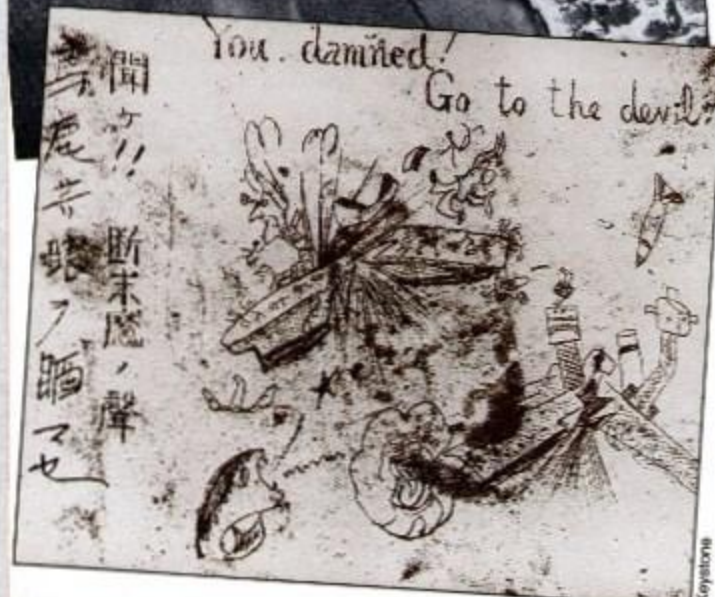 You. damned!
Go to the devil!
聞ケ!! 断末魔ノ聲
馬鹿共眼ヲ マセ
Keystone